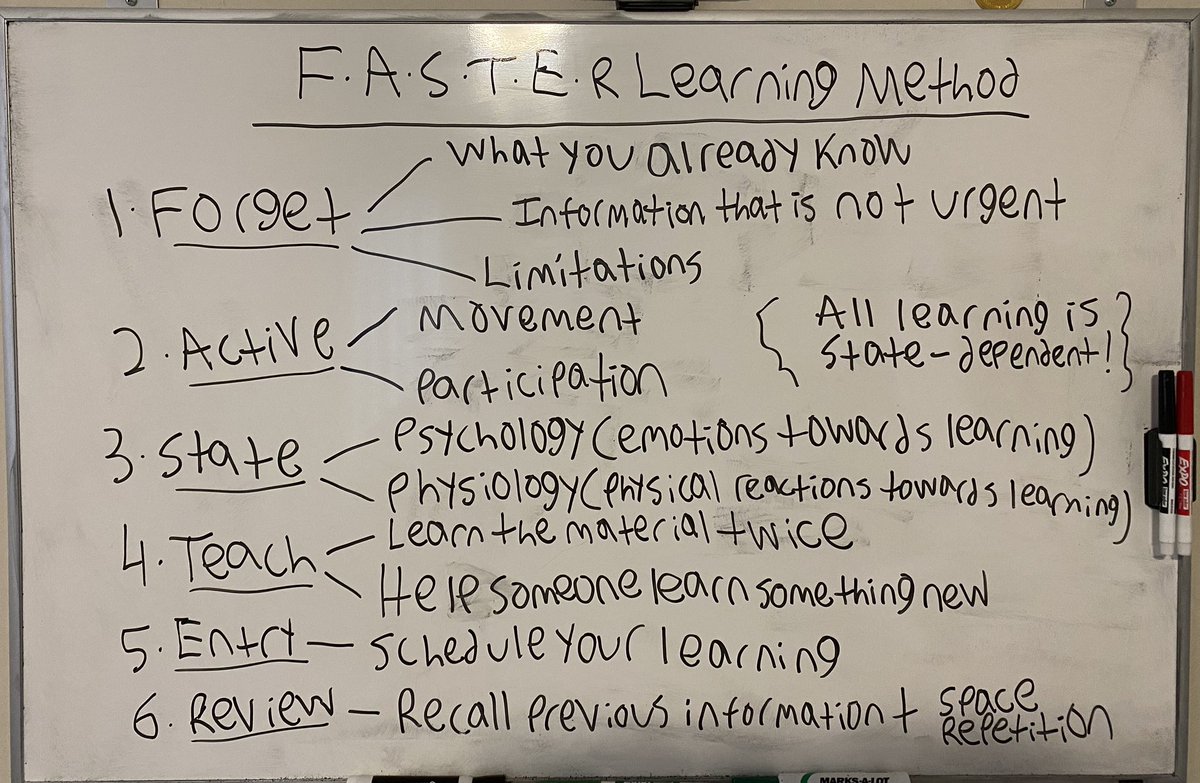 F.A.S.T.E.R Learning Method
What you already know
1. Forget
Information that is not urgent
Limitations
2. Active
Movement
Participation
{ All learning is
state-dependent! }
3. State
Psychology (emotions towards learning)
Physiology (physical reactions towards learning)
4. Teach
Learn the material twice
Help someone learn something new
5. Entry – Schedule your learning
6. Review – Recall previous information + space
repetition
EXPO
EXPO
MARKS-A-LOT